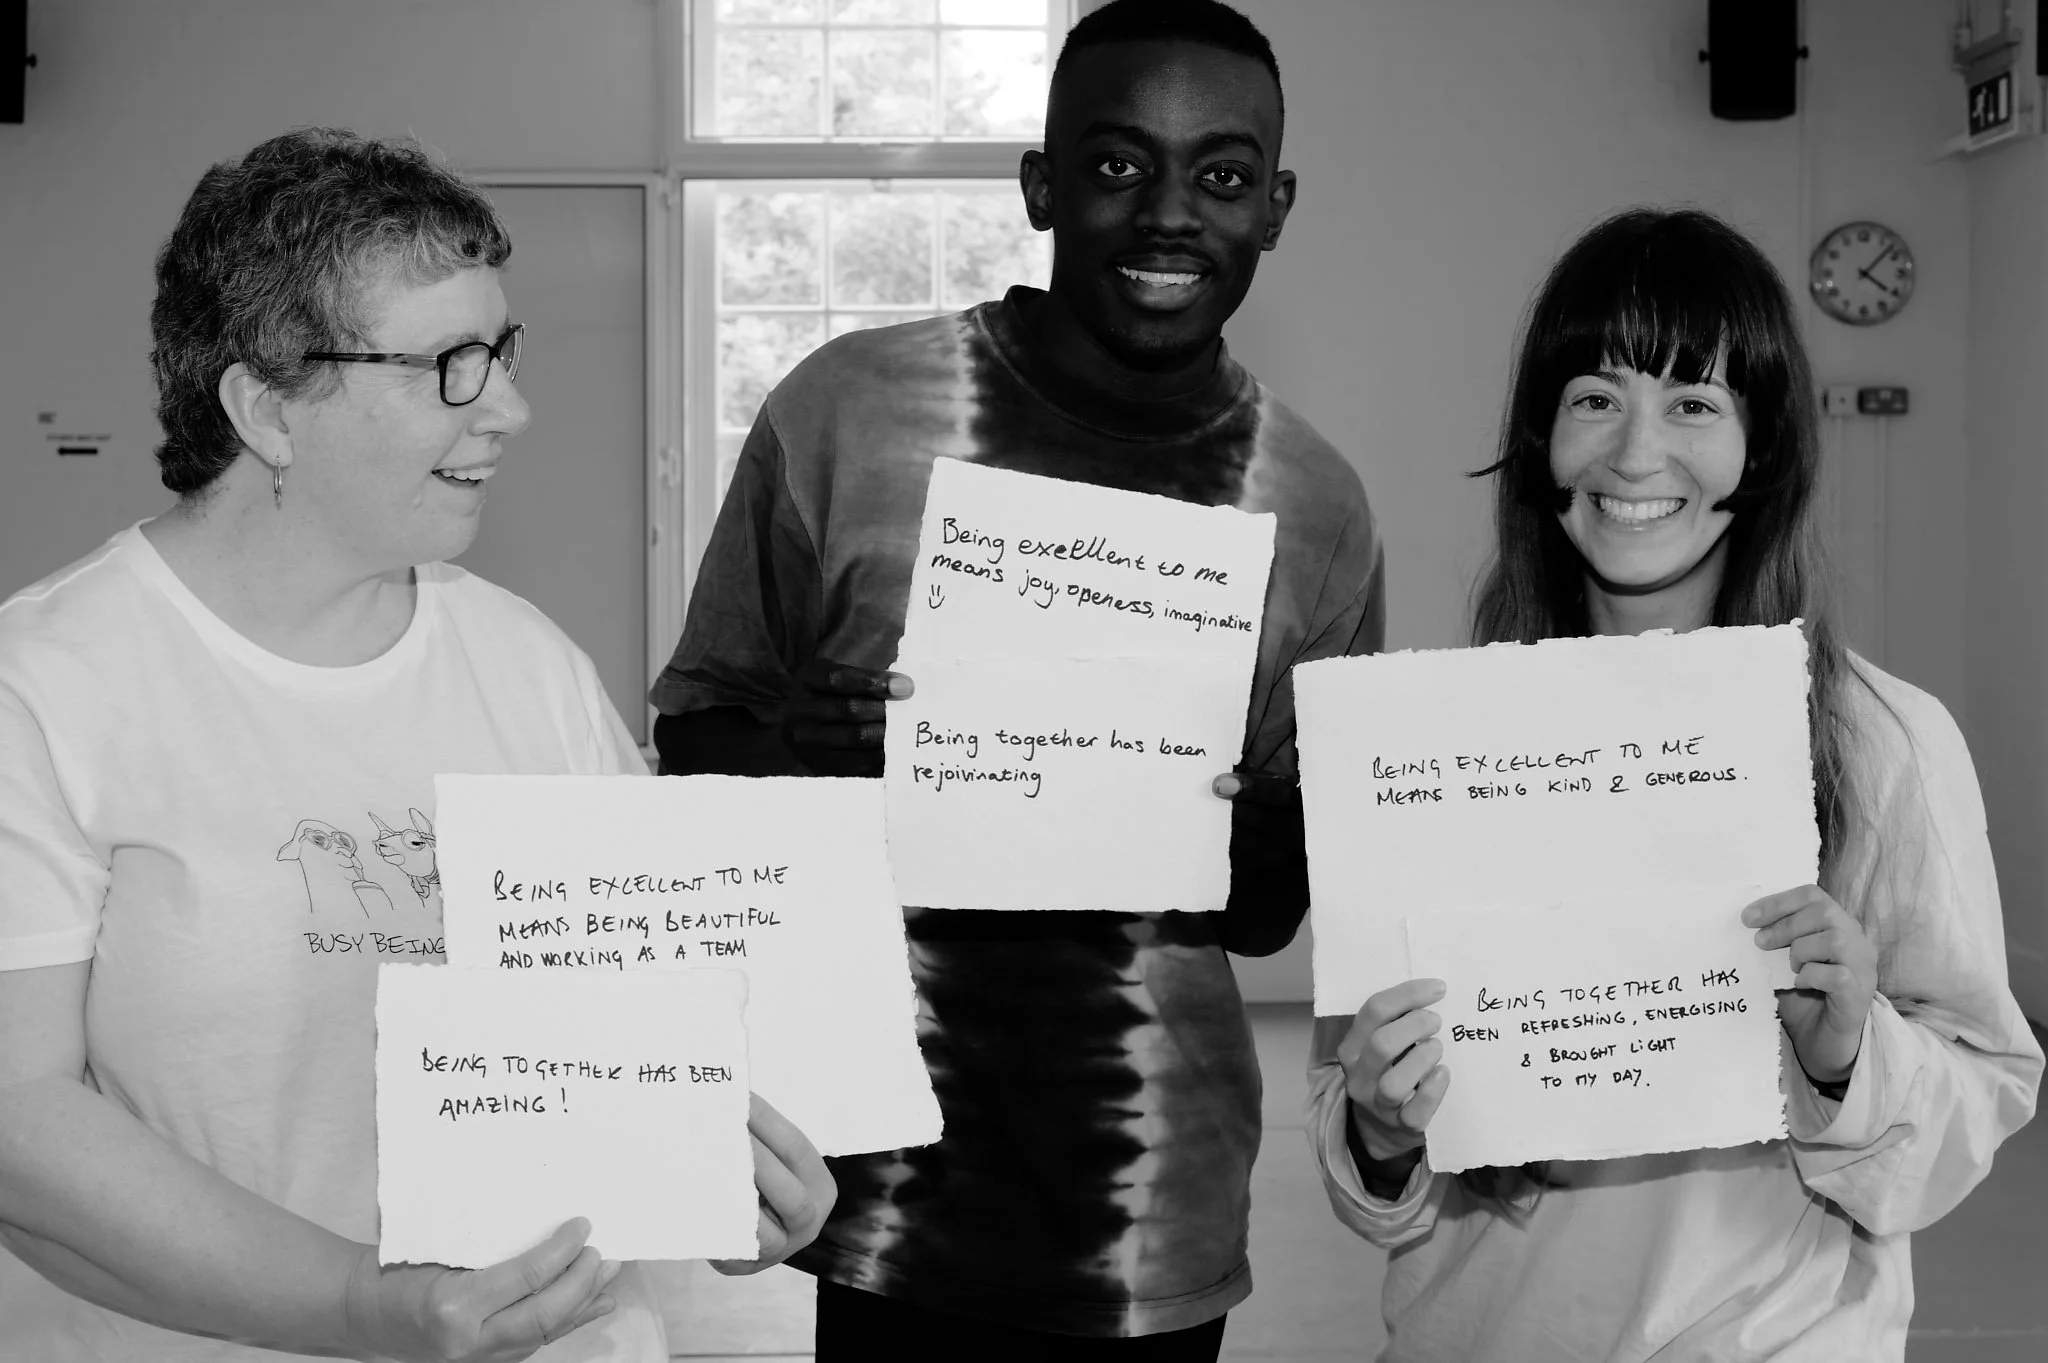 BEING EXCELLENT TO ME
MEANS BEING BEAUTIFUL
AND WORKING AS A TEAM
BEING TOGETHER HAS BEEN
AMAZING!
BUSY BEING
Being exellent to me
means joy, openess, imaginative
Being together has been
rejoivinating
BEING EXCELLENT TO ME
MEANS BEING KIND & GENEROUS.
BEING TOGETHER HAS
BEEN REFRESHING, ENERGISING
& BROUGHT LIGHT
TO MY DAY.